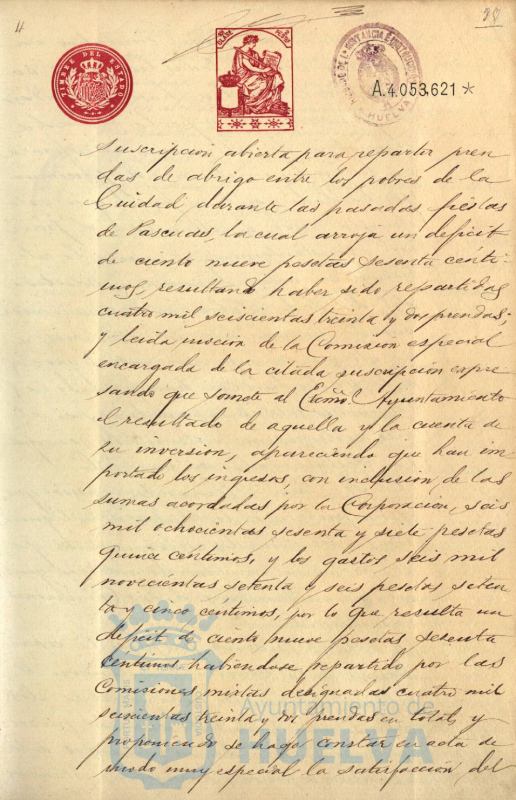 4
TIMBRE DEL ESTADO
HUELVA
A.4.053.621*
suscripcion abierta para repartir pren
das de abrigo entre los pobres de la
Ciudad durante las pasadas fiestas
de Pascuas, la cual arroja un deficit
de ciento nueve pesetas sesenta cénti-
mos, resultando haber sido repartidas
cuatro mil seiscientas treinta y dos prendas;
y leida mocion de la Comision especial
encargada de la citada suscripcion expre
sando que somete al Excmo. Ayuntamiento
el resultado de aquella y la cuenta de
su inversion, apareciendo que han im
portado los ingresos, con inclusion de las
sumas acordadas por la Corporacion, seis
mil ochocientas sesenta y siete pesetas
quince centimos, y los gastos seis mil
novecientas setenta y seis pesetas seten
ta y cinco céntimos, por lo que resulta un
deficit de ciento nueve pesetas sesenta
centimos habiendose repartido por las
Comisiones mixtas designadas cuatro mil
seiscientas treinta y dos prendas en total, y
proponiendo se haga constar en acta de
modo muy especial la satisfaccion del
Ayuntamiento de
HUELVA